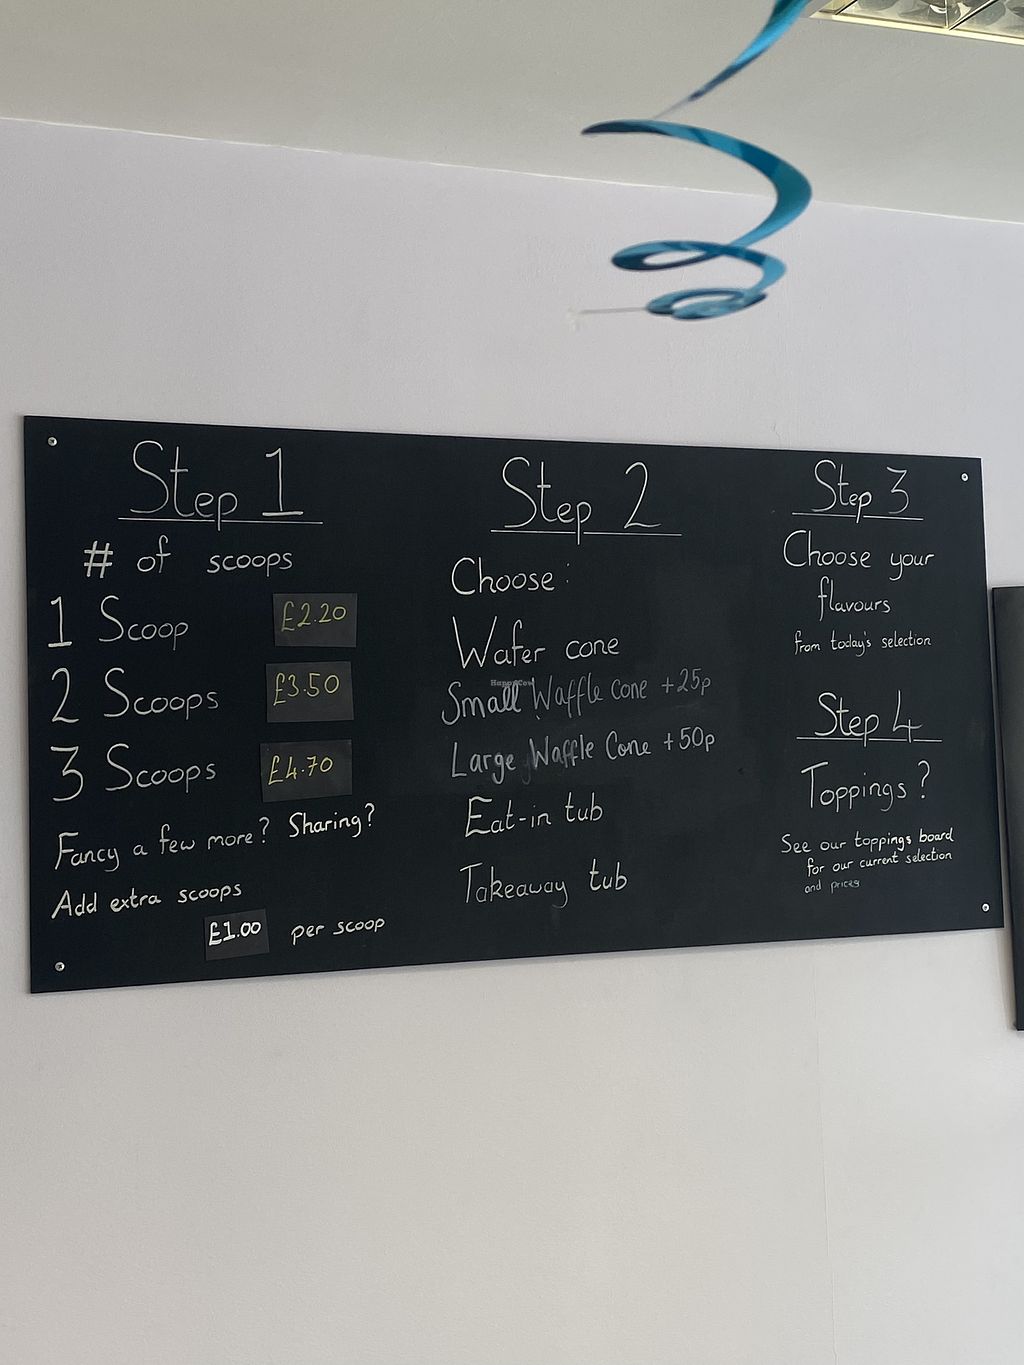 Step 1
# of scoops
1 Scoop £2.20
2 Scoops £3.50
3 Scoops £4.70
Fancy a few more? Sharing?
Add extra scoops
£1.00 per scoop
Step 2
Choose:
Wafer cone
Small Waffle Cone +25p
Large Waffle Cone +50p
Eat-in tub
Takeaway tub
Step 3
Choose your
flavours
from today's selection
Step 4
Toppings?
See our toppings board
for our current selection
and prices
HappyCow